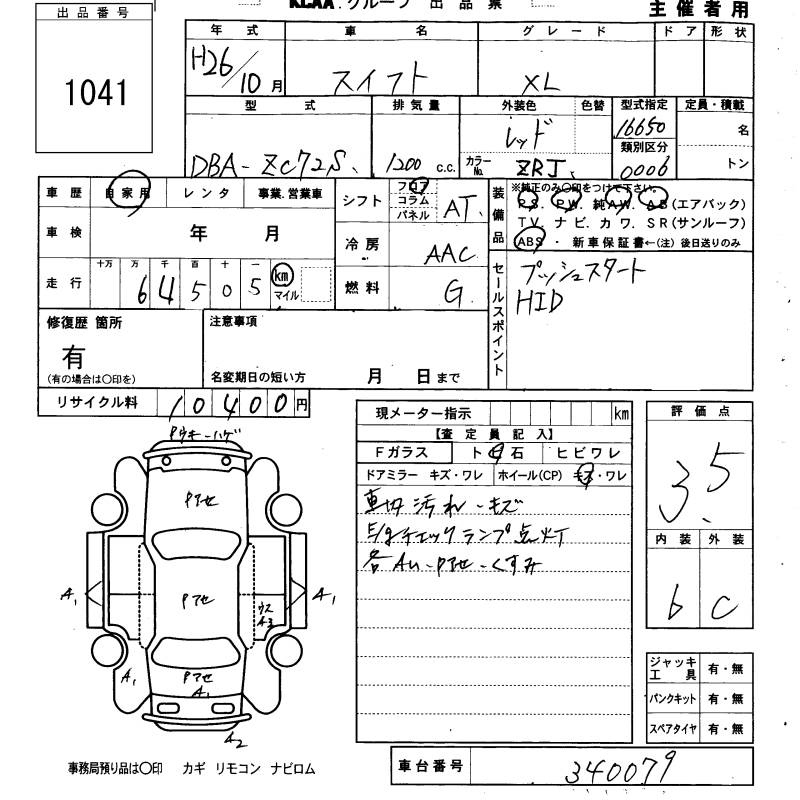 KCAA.グループ 出品票
主催者用
出品番号
1041
年式 車名 グレード ドア 形状
H26/10月 スイフト XL
型式 排気量 外装色 色替 型式指定 定員・積載
16650
名
類別区分
DBA-ZC72S 1200 c.c. レッド カラーNo. ZRJ 0006 トン
車歴 自家用 レンタ 事業.営業車
シフト フロア コラム パネル AT
装備品 ※純正のみ〇印をつけて下さい。
P.S. P.W. 純A.W. A.B(エアバック)
T V. ナビ. カワ. S R(サンルーフ)
ABS ・ 新車保証書←(注) 後日送りのみ
車検 年 月
冷房 AAC
走行 十万 万 千 百 十 一
64505 km マイル
燃料 G
セールスポイント
プッシュスタート
HID
修復歴 箇所
有
(有の場合は〇印を)
注意事項
名変期日の短い方 月 日まで
リサイクル料 10400円
現メーター指示 km
【査定員記入】
Fガラス ト 石 ヒビワレ
ドアミラー キズ・ワレ ホイール(CP) キズ・ワレ
車内汚れ・キズ
E/gチェックランプ点灯
各AU・Pアセ・くすみ
評価点
3.5
内装 外装
b C
ジャッキ工具 有・無
パンクキット 有・無
スペアタイヤ 有・無
Pウキ・ハゲ
Pアセ
A1 Pアセ ウス A3 A1
A1 Pアセ A1
A2
事務局預り品は〇印 カギ リモコン ナビロム
車台番号 340079